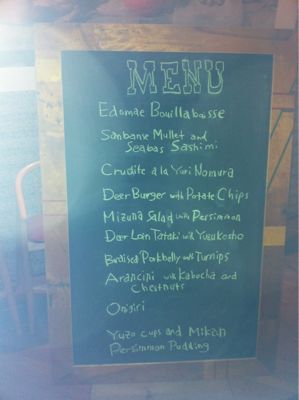 MENU
Edomae Bouillabaisse
Sanbanse Mullet and
Seabas Sashimi
Crudite a la Yuri Nomura
Deer Burger with Potato Chips
Mizuna Salad with Persimmon
Deer Loin Tataki with Yuzukosho
Braised Porkbelly with Turnips
Arancini with Kabocha and
Chestnuts
Onigiri
Yuzu cups and Mikan
Persimmon Pudding